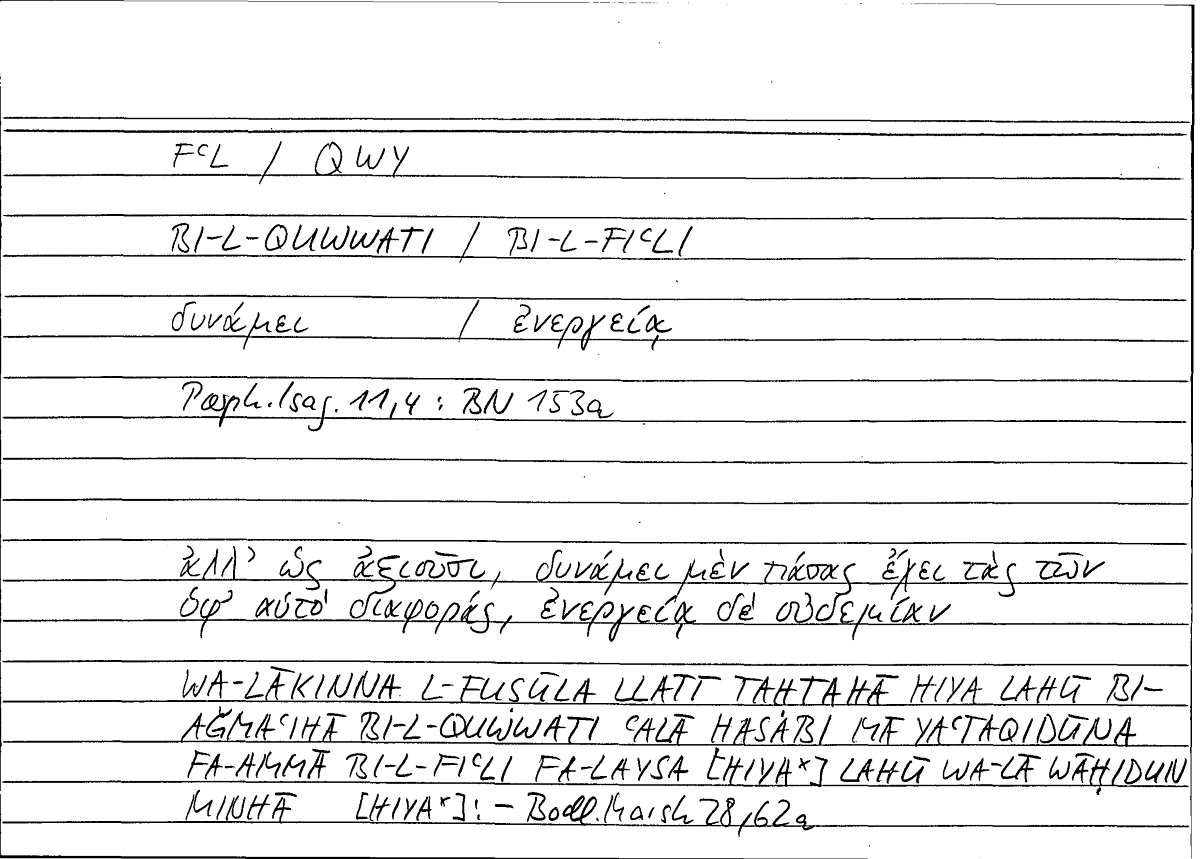 FᶜL / QWY
BI-L-QUWWATI / BI-L-FIᶜLI
δυνάμει / ἐνεργείᾳ
Porph. Isag. 11,4 : BN 153a
ἀλλ' ὡς ἀξιοῦσι, δυνάμει μὲν πάσας ἔχει τὰς τῶν
ὑφ' αὑτὸ διαφοράς, ἐνεργείᾳ δὲ οὐδεμίαν
WA-LĀKINNA L-FUṢŪLA LLATĪ TAḤTAHĀ HIYA LAHŪ BI-
AǦMAᶜIHĀ BI-L-QUWWATI ᶜALĀ ḤASABI MĀ YAᶜTAQIDŪNA
FA-AMMĀ BI-L-FIᶜLI FA-LAYSA [HIYA*] LAHŪ WA-LĀ WĀḤIDUN
MINHĀ [HIYA*]: – Bodl. Marsh 28,62a